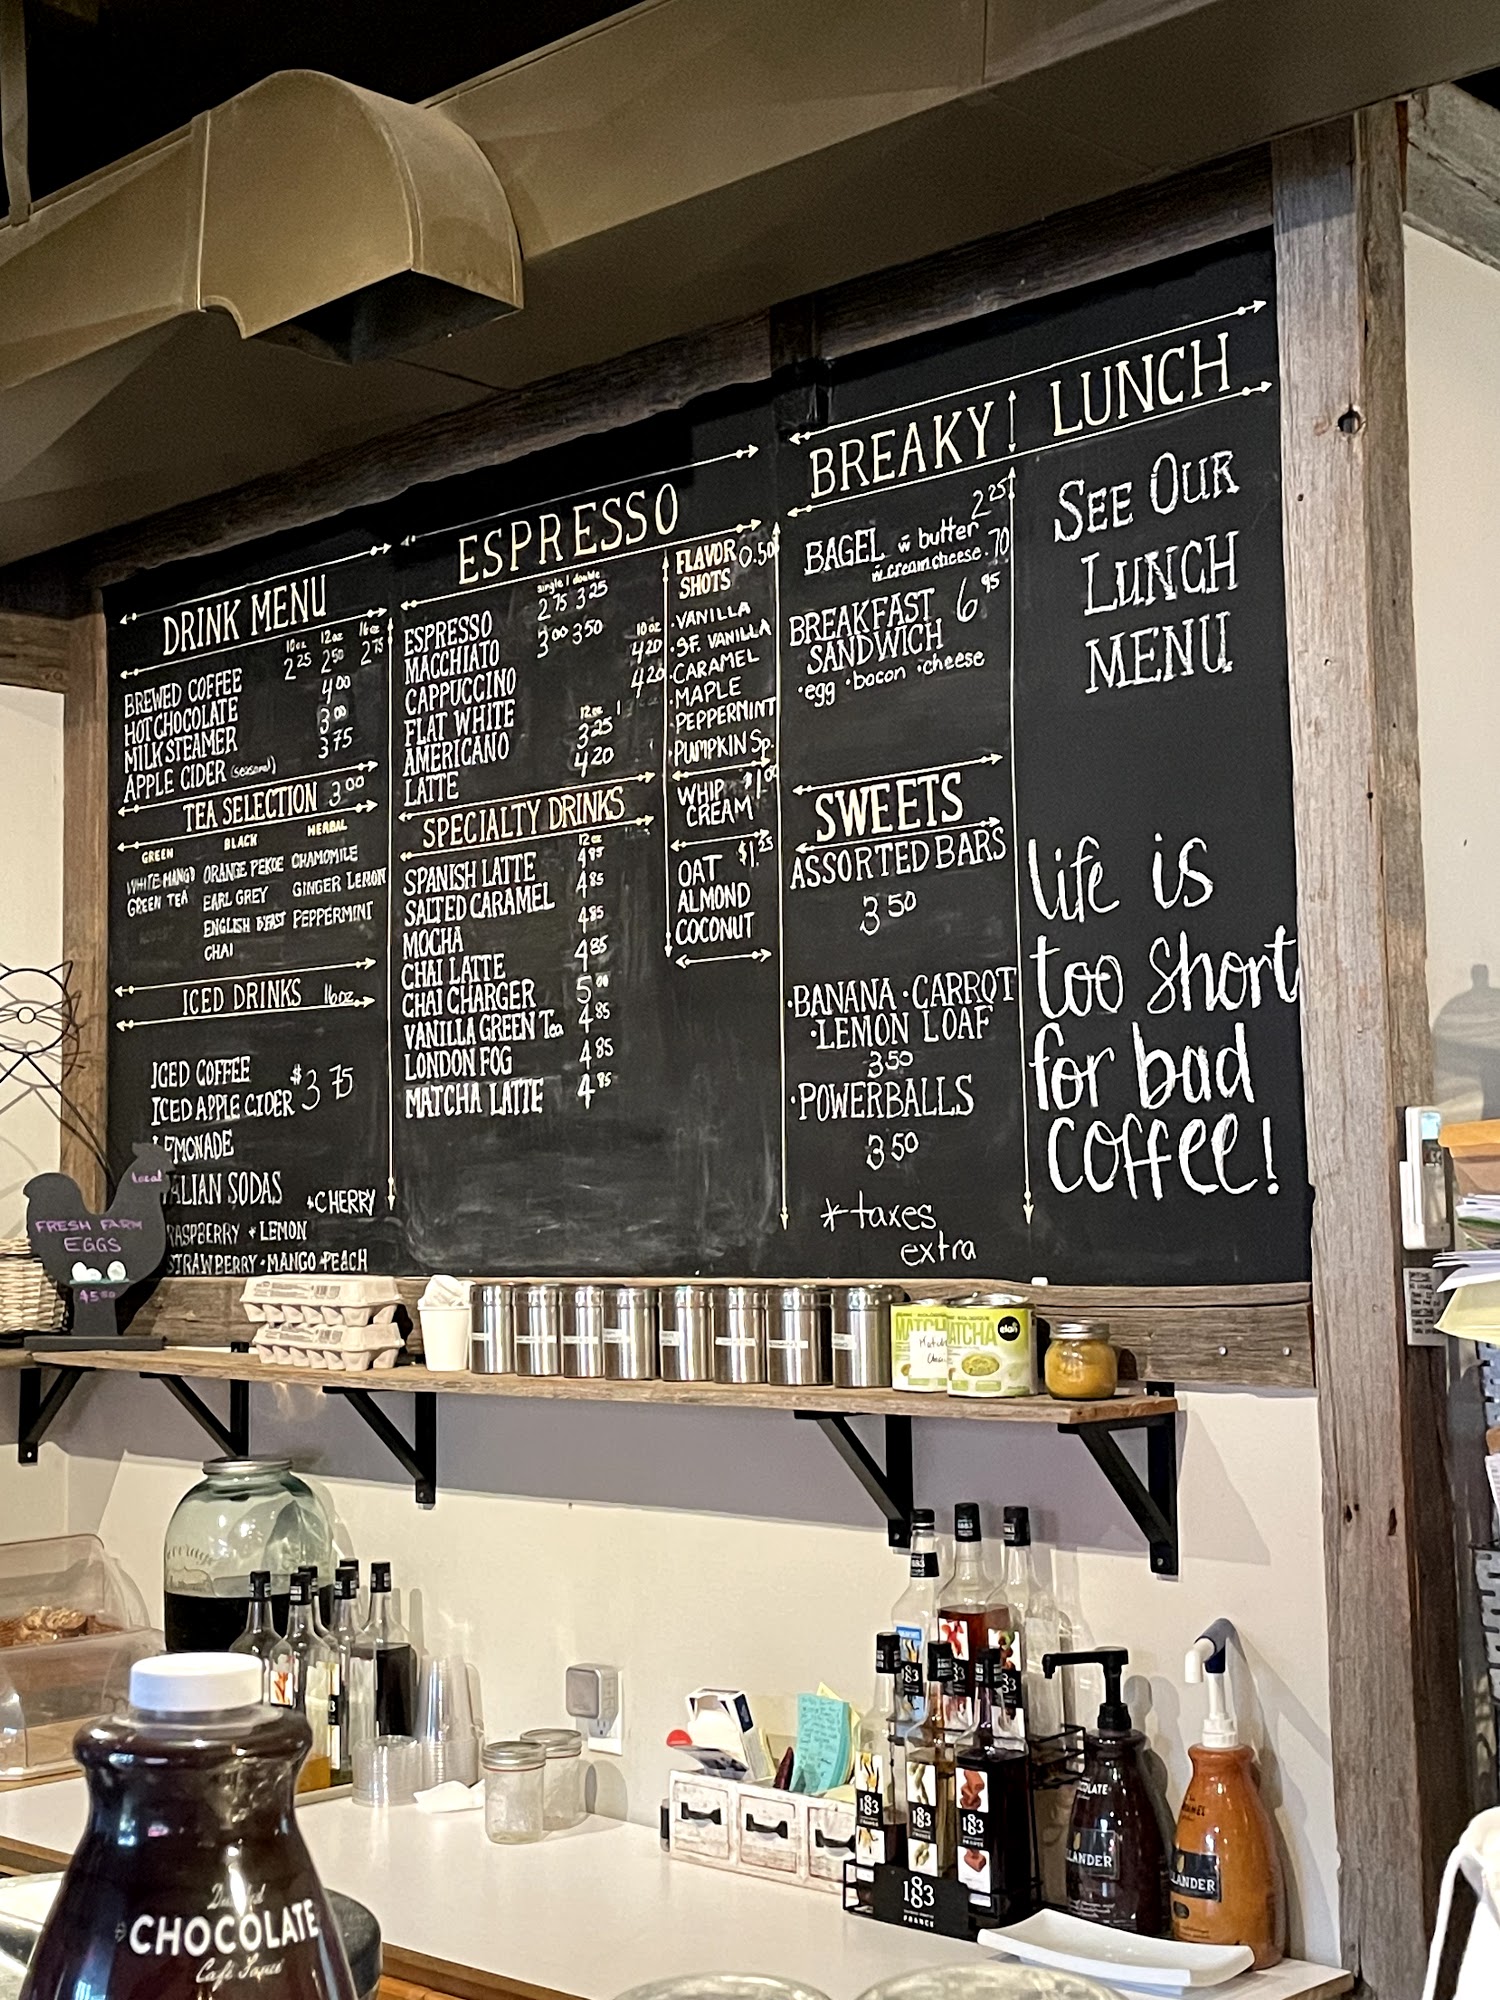 DRINK MENU
10oz 12oz 16oz
BREWED COFFEE 2 25 2 50 2 75
HOT CHOCOLATE 4 00
MILK STEAMER 3 00
APPLE CIDER (seasonal) 3 75
TEA SELECTION 3 00
GREEN BLACK HERBAL
WHITE MANGO ORANGE PEKOE CHAMOMILE
GREEN TEA EARL GREY GINGER LEMON
ENGLISH B'FAST PEPPERMINT
CHAI
ICED DRINKS 16oz
ICED COFFEE
ICED APPLE CIDER $3 75
LEMONADE
ALIAN SODAS
CHERRY
RASPBERRY LEMON
STRAWBERRY MANGO PEACH
ESPRESSO
single | double
ESPRESSO 2 75 3 25
MACCHIATO 3 00 3 50
10 oz
CAPPUCCINO 4 20
FLAT WHITE 4 20
12oz
AMERICANO 3 25
LATTE 4 20
SPECIALTY DRINKS
12oz
SPANISH LATTE 4 85
SALTED CARAMEL 4 85
MOCHA 4 85
CHAI LATTE 4 85
CHAI CHARGER 5 00
VANILLA GREEN Tea 4 85
LONDON FOG 4 85
MATCHA LATTE 4 85
FLAVOR 0.50
SHOTS
• VANILLA
• SF. VANILLA
• CARAMEL
• MAPLE
• PEPPERMINT
• PUMPKIN Sp.
WHIP $1.00
CREAM
OAT $1.25
ALMOND
COCONUT
BREAKY | LUNCH
BAGEL w butter 2 25
w. cream cheese .70
BREAKFAST 6 95
SANDWICH
• egg • bacon • cheese
SWEETS
ASSORTED BARS
3 50
• BANANA • CARROT
• LEMON LOAF
3 50
• POWERBALLS
3 50
* taxes
extra
SEE OUR
LUNCH
MENU
life is
too short
for bad
coffee!
Local
FRESH FARM
EGGS
$5.50
MATCHA
MATCHA
elan
183
183
183
183
FRANCE
CHOCOLATE
LANDER
LANDER
CHOCOLATE
Café Sauce